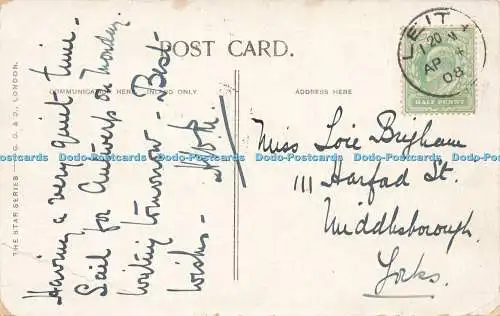 POST CARD.
COMMUNICATION HERE INLAND ONLY
ADDRESS HERE
THE STAR SERIES G. D. & D., LONDON.
Having a very quiet time -
Sail for Antwerp on Monday.
Writing tomorrow - Best -
Wishes -
LEITH
1 20
AP 4
08
HALF PENNY
Miss Loie Brigham
111 Harfad St.
Middlesborough
Yorks.
Dodo-Postcards Dodo-Postcards Dodo-Postcards Dodo-Postcards Dodo-Postcards Dodo-Postcards